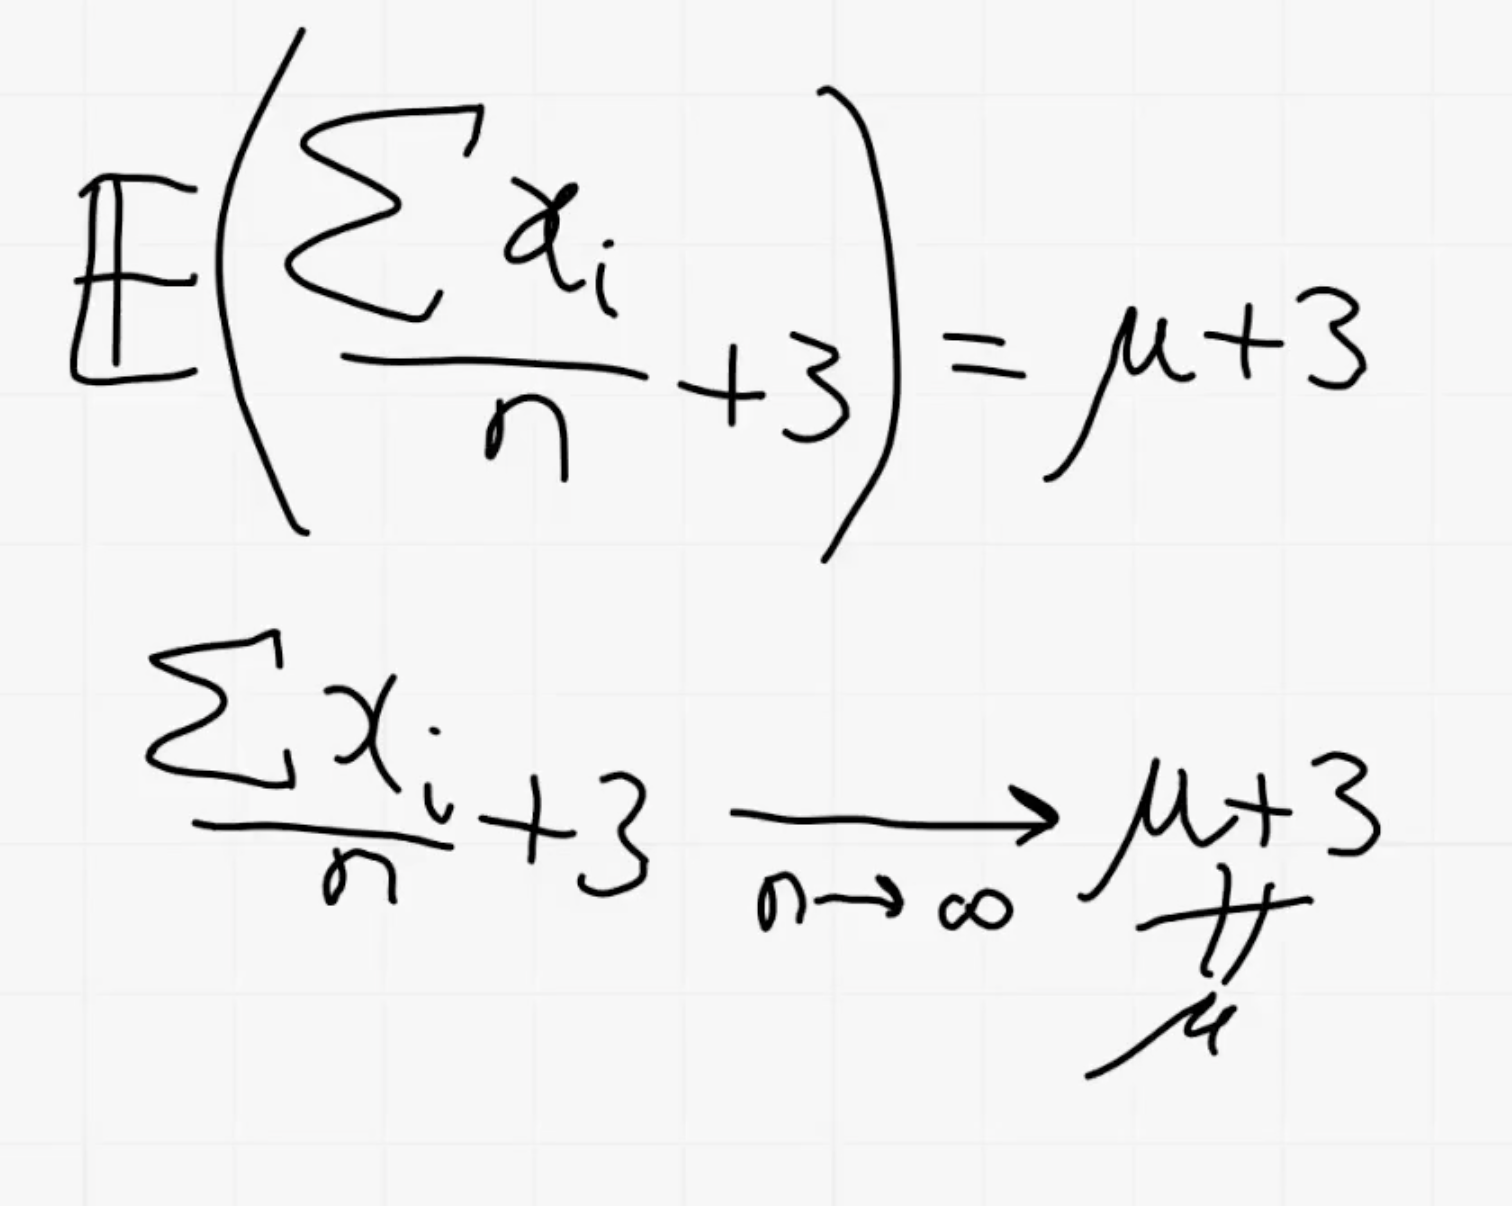 𝔼(∑xᵢ/n +3) = μ+3
∑xᵢ/n +3 ⟶ μ+3
n→∞
≠
μ